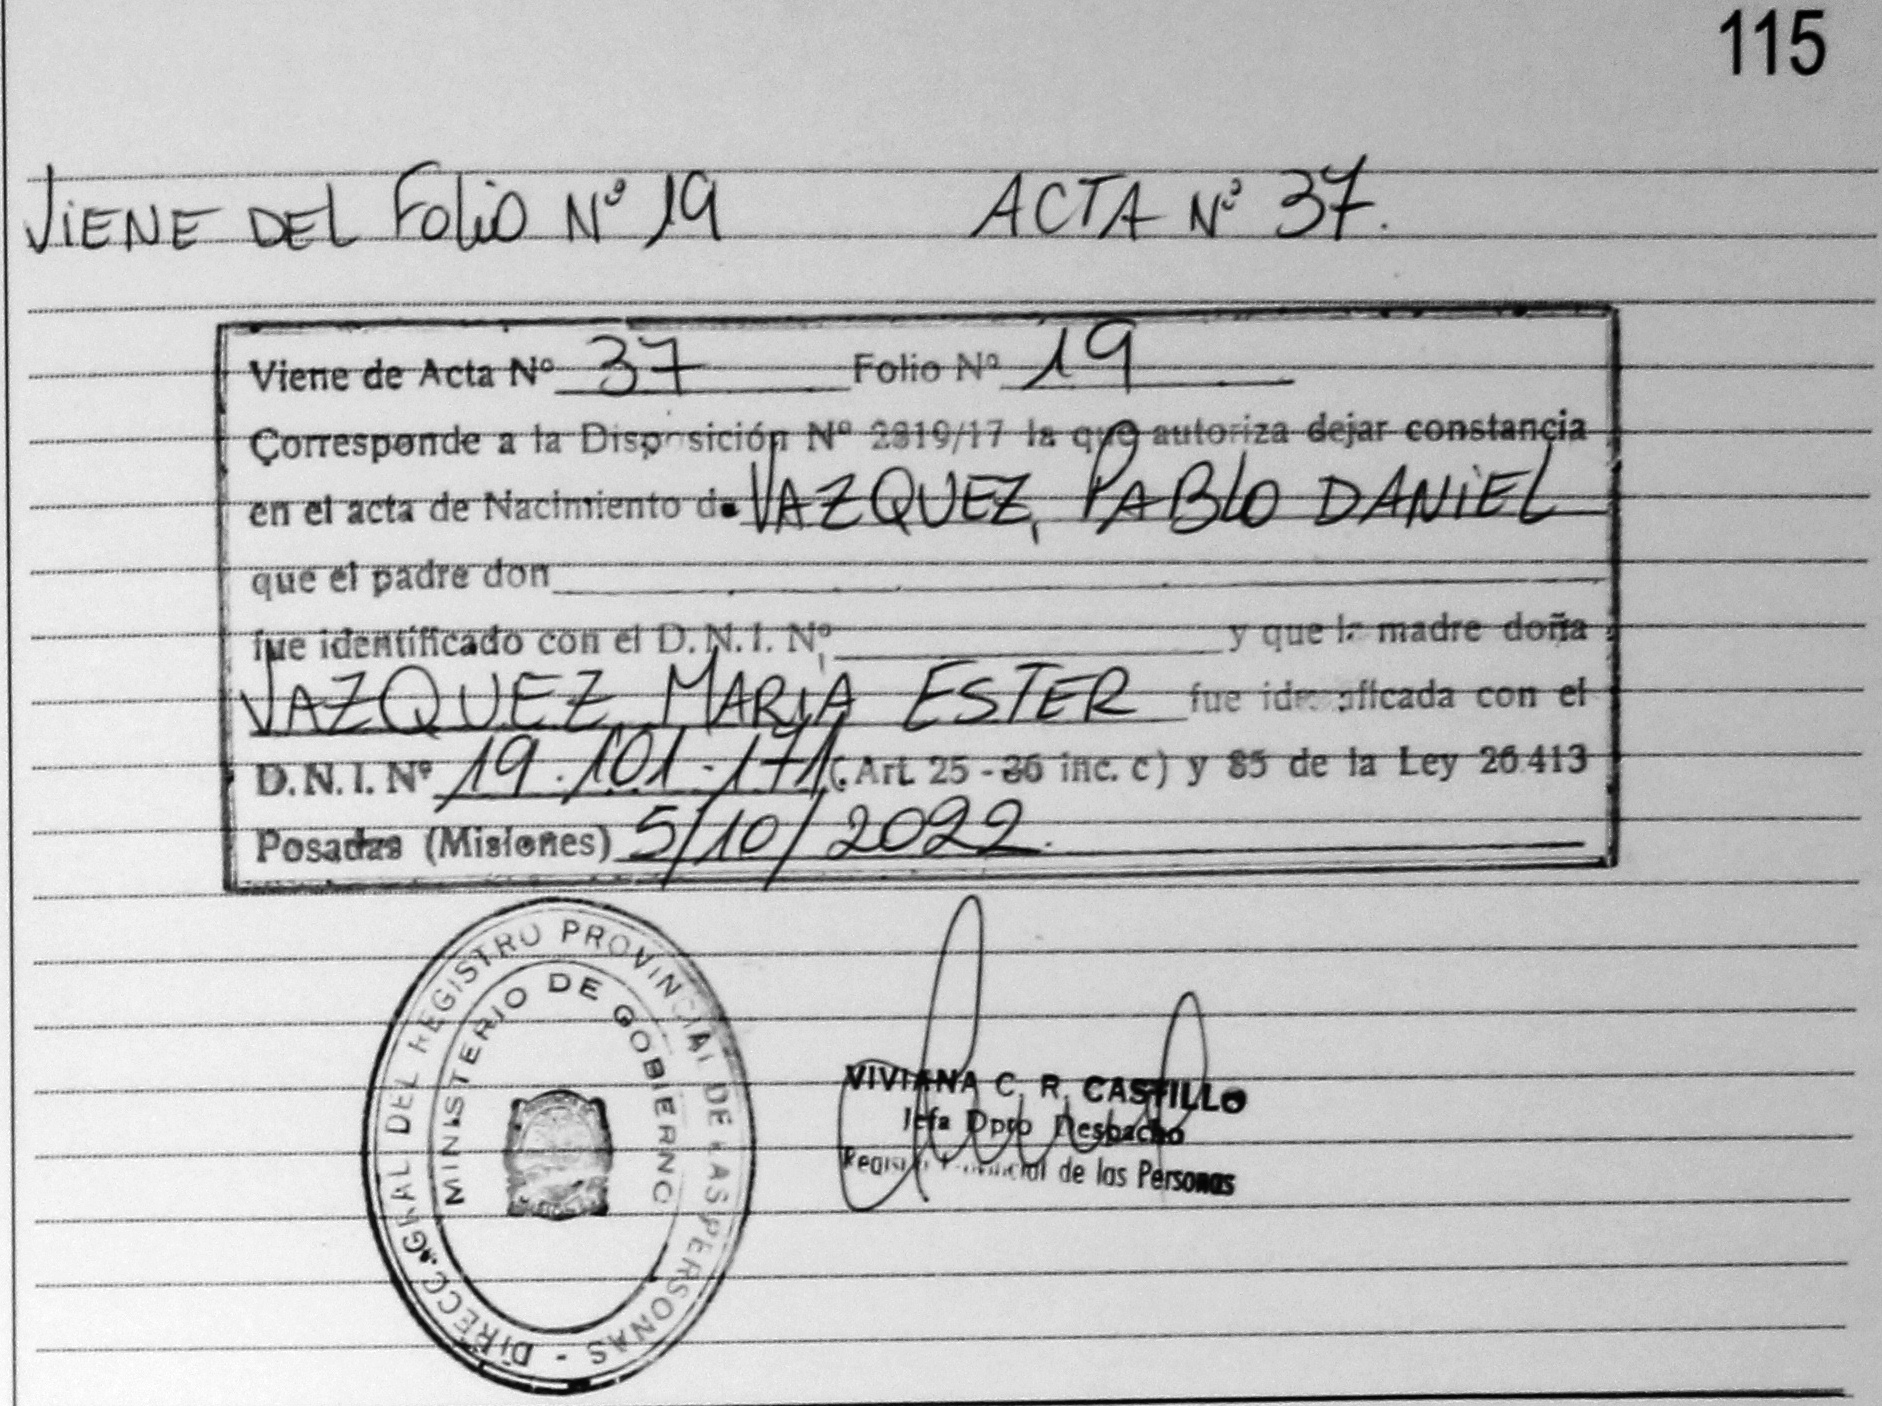 115
VIENE DEL FOLIO Nº 19 ACTA Nº 37.
Viene de Acta Nº 37 Folio Nº 19
Corresponde a la Disposición Nº 2819/17 la que autoriza dejar constancia
en el acta de Nacimiento de VAZQUEZ, PABLO DANIEL
que el padre don
fue identificado con el D.N.I. Nº y que la madre doña
VAZQUEZ, MARIA ESTER fue identificada con el
D.N.I. Nº 19.101.171 (Art. 25 - 36 inc. c) y 85 de la Ley 26.413
Posadas (Misiones) 5/10/2022.
DIRECC. GRAL DEL REGISTRO PROVINCIAL DE LAS PERSONAS -
MINISTERIO DE GOBIERNO
VIVIANA C. R. CASTILLO
Jefa Dpto Despacho
Registro Provincial de las Personas